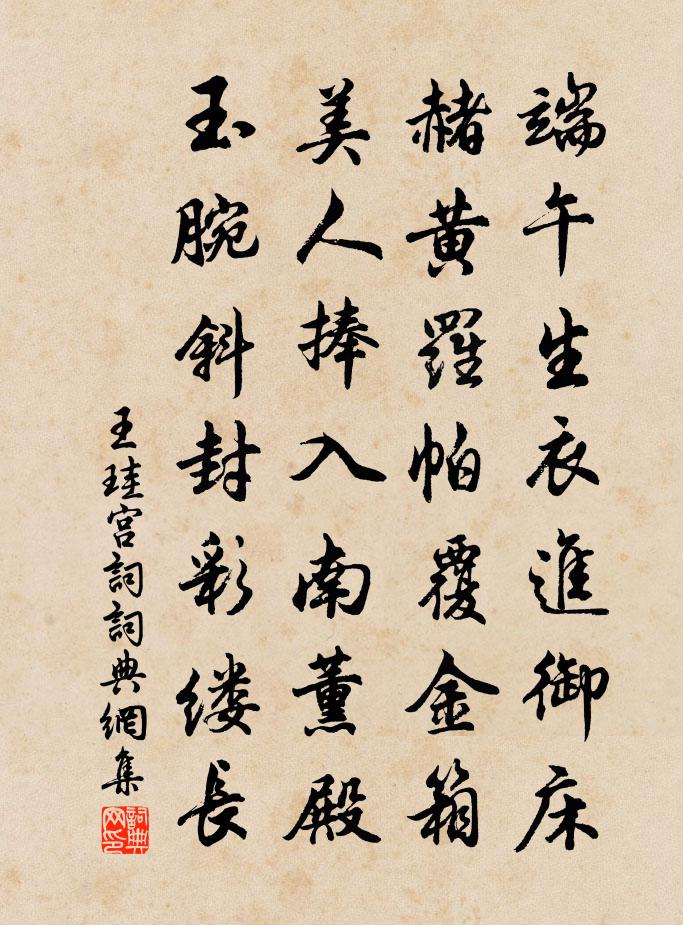 端午生衣進御床
赭黃羅帕覆金箱
美人捧入南薰殿
玉腕斜封彩缕長
王珪宮詞詞典網集
詞典网印